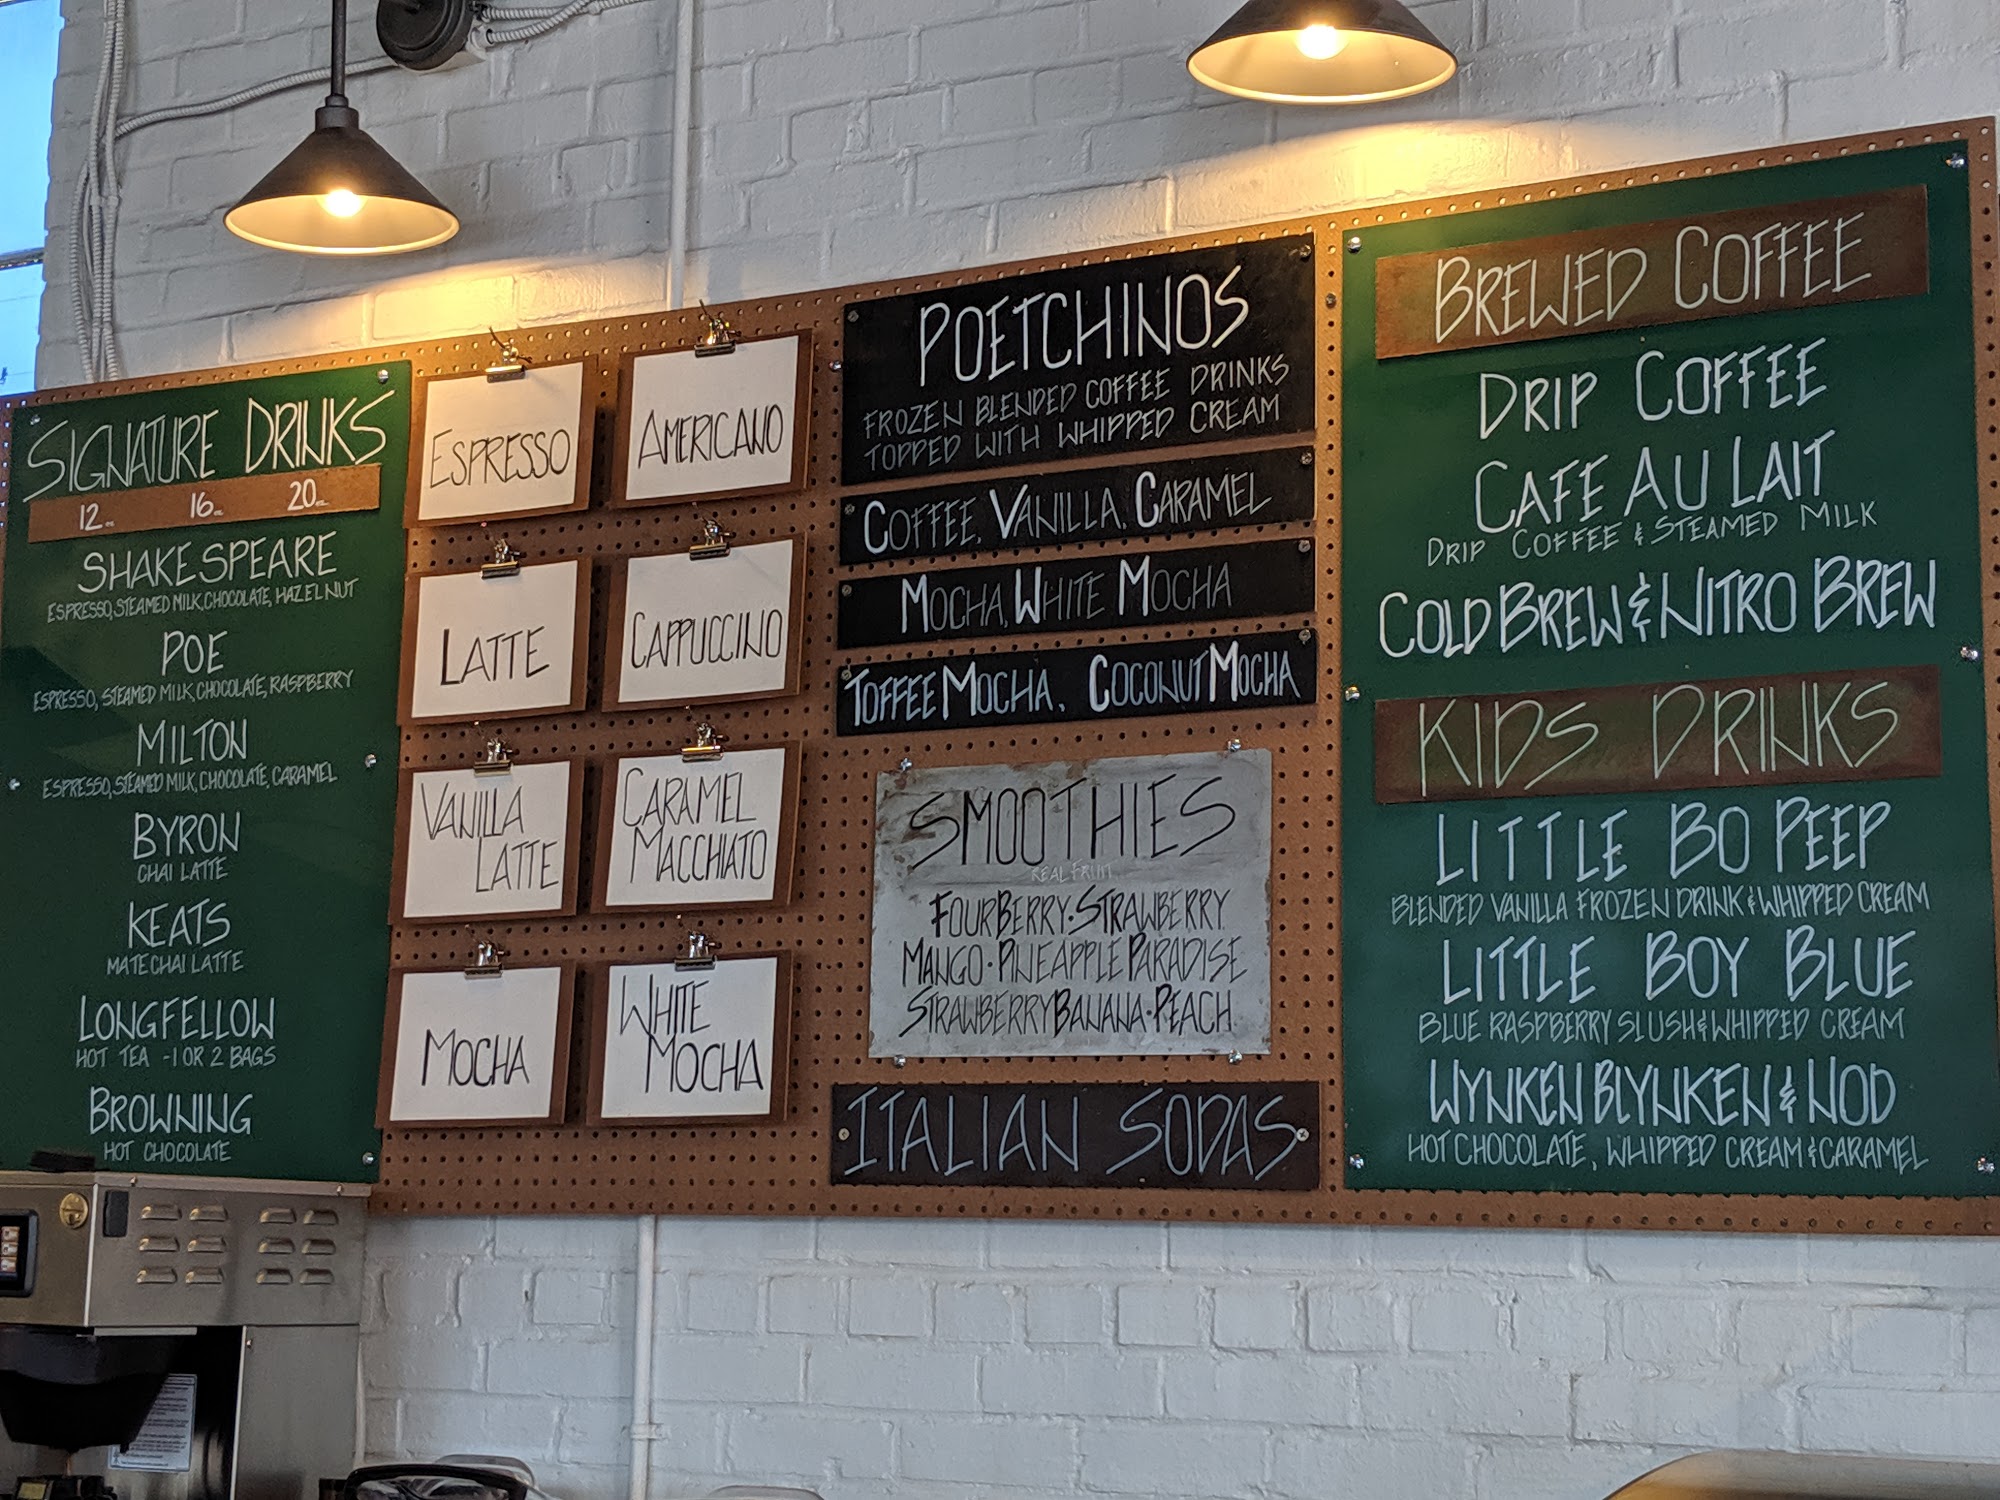 SIGNATURE DRINKS
12 oz. 16 oz. 20 oz.
SHAKESPEARE
ESPRESSO, STEAMED MILK, CHOCOLATE, HAZELNUT
POE
ESPRESSO, STEAMED MILK, CHOCOLATE, RASPBERRY
MILTON
ESPRESSO, STEAMED MILK, CHOCOLATE, CARAMEL
BYRON
CHAI LATTE
KEATS
MATE CHAI LATTE
LONGFELLOW
HOT TEA - 1 OR 2 BAGS
BROWNING
HOT CHOCOLATE
ESPRESSO
AMERICANO
LATTE
CAPPUCCINO
VANILLA
LATTE
CARAMEL
MACCHIATO
MOCHA
WHITE
MOCHA
POETCHINOS
FROZEN BLENDED COFFEE DRINKS
TOPPED WITH WHIPPED CREAM
COFFEE, VANILLA, CARAMEL
MOCHA, WHITE MOCHA
TOFFEE MOCHA, COCONUT MOCHA
SMOOTHIES
REAL FRUIT
FOUR BERRY • STRAWBERRY
MANGO • PINEAPPLE PARADISE
STRAWBERRY BANANA • PEACH
ITALIAN SODAS
BREWED COFFEE
DRIP COFFEE
CAFE AU LAIT
DRIP COFFEE & STEAMED MILK
COLD BREW & NITRO BREW
KIDS DRINKS
LITTLE BO PEEP
BLENDED VANILLA FROZEN DRINK & WHIPPED CREAM
LITTLE BOY BLUE
BLUE RASPBERRY SLUSH & WHIPPED CREAM
WYNKEN BLYNKEN & NOD
HOT CHOCOLATE, WHIPPED CREAM & CARAMEL